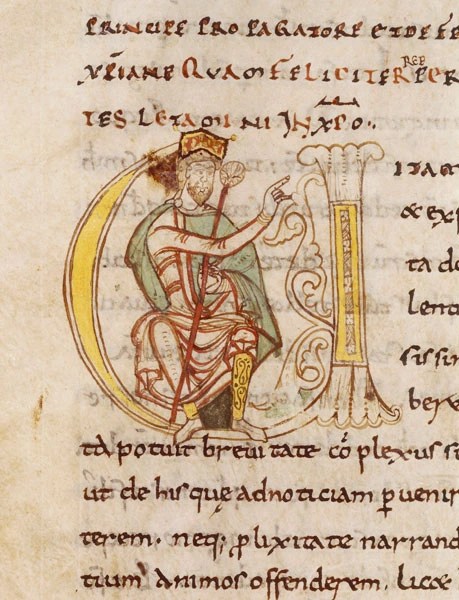 PRINCIPE PROPAGATORE ET DEFE
XPIANE QUAM FELICITER REPER
TES LETAMINI IN XPO.
ITAQ
& exp
ta do
lenti
sissin
bere
ta potuit brevitate cōplexus si
ut de his que ad noticiam puenir
terem. neq; plixitate narrand
tium animos offenderem. licǣ